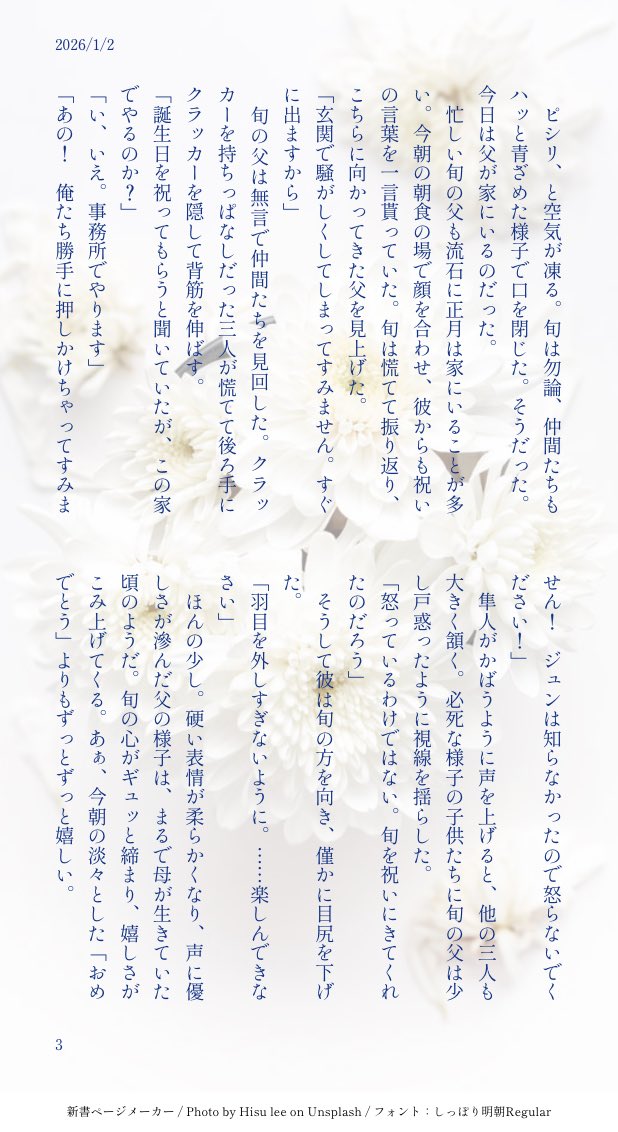 2026/1/2
　ピシリ、と空気が凍る。旬は勿論、仲間たちも
ハッと青ざめた様子で口を閉じた。そうだった。
今日は父が家にいるのだった。
　忙しい旬の父も流石に正月は家にいることが多
い。今朝の朝食の場で顔を合わせ、彼からも祝い
の言葉を一言貰っていた。旬は慌てて振り返り、
こちらに向かってきた父を見上げた。
「玄関で騒がしくしてしまってすみません。すぐ
に出ますから」
　旬の父は無言で仲間たちを見回した。クラッ
カーを持ちっぱなしだった三人が慌てて後ろ手に
クラッカーを隠して背筋を伸ばす。
「誕生日を祝ってもらうと聞いていたが、この家
でやるのか？」
「い、いえ。事務所でやります」
「あの！　俺たち勝手に押しかけちゃってすみま
せん！　ジュンは知らなかったので怒らないでく
ださい！」
　隼人がかばうように声を上げると、他の三人も
大きく頷く。必死な様子の子供たちに旬の父は少
し戸惑ったように視線を揺らした。
「怒っているわけではない。旬を祝いにきてくれ
たのだろう」
　そうして彼は旬の方を向き、僅かに目尻を下げ
た。
「羽目を外しすぎないように。……楽しんできな
さい」
　ほんの少し。硬い表情が柔らかくなり、声に優
しさが滲んだ父の様子は、まるで母が生きていた
頃のようだ。旬の心がギュッと締まり、嬉しさが
こみ上げてくる。あぁ、今朝の淡々とした「おめ
でとう」よりもずっとずっと嬉しい。
3
新書ページメーカー / Photo by Hisu lee on Unsplash / フォント：しっぽり明朝Regular